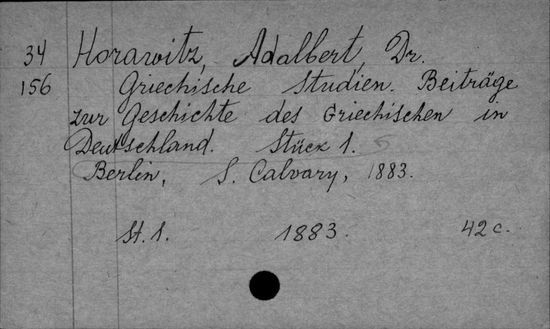 34 Horawitz, Adalbert, Dr.
156 Griechische Studien. Beiträge
zur Geschichte des Griechischen in
Deutschland. Stück 1.
Berlin, S. Calvary, 1883.
St. 1. 1883. 42 c.